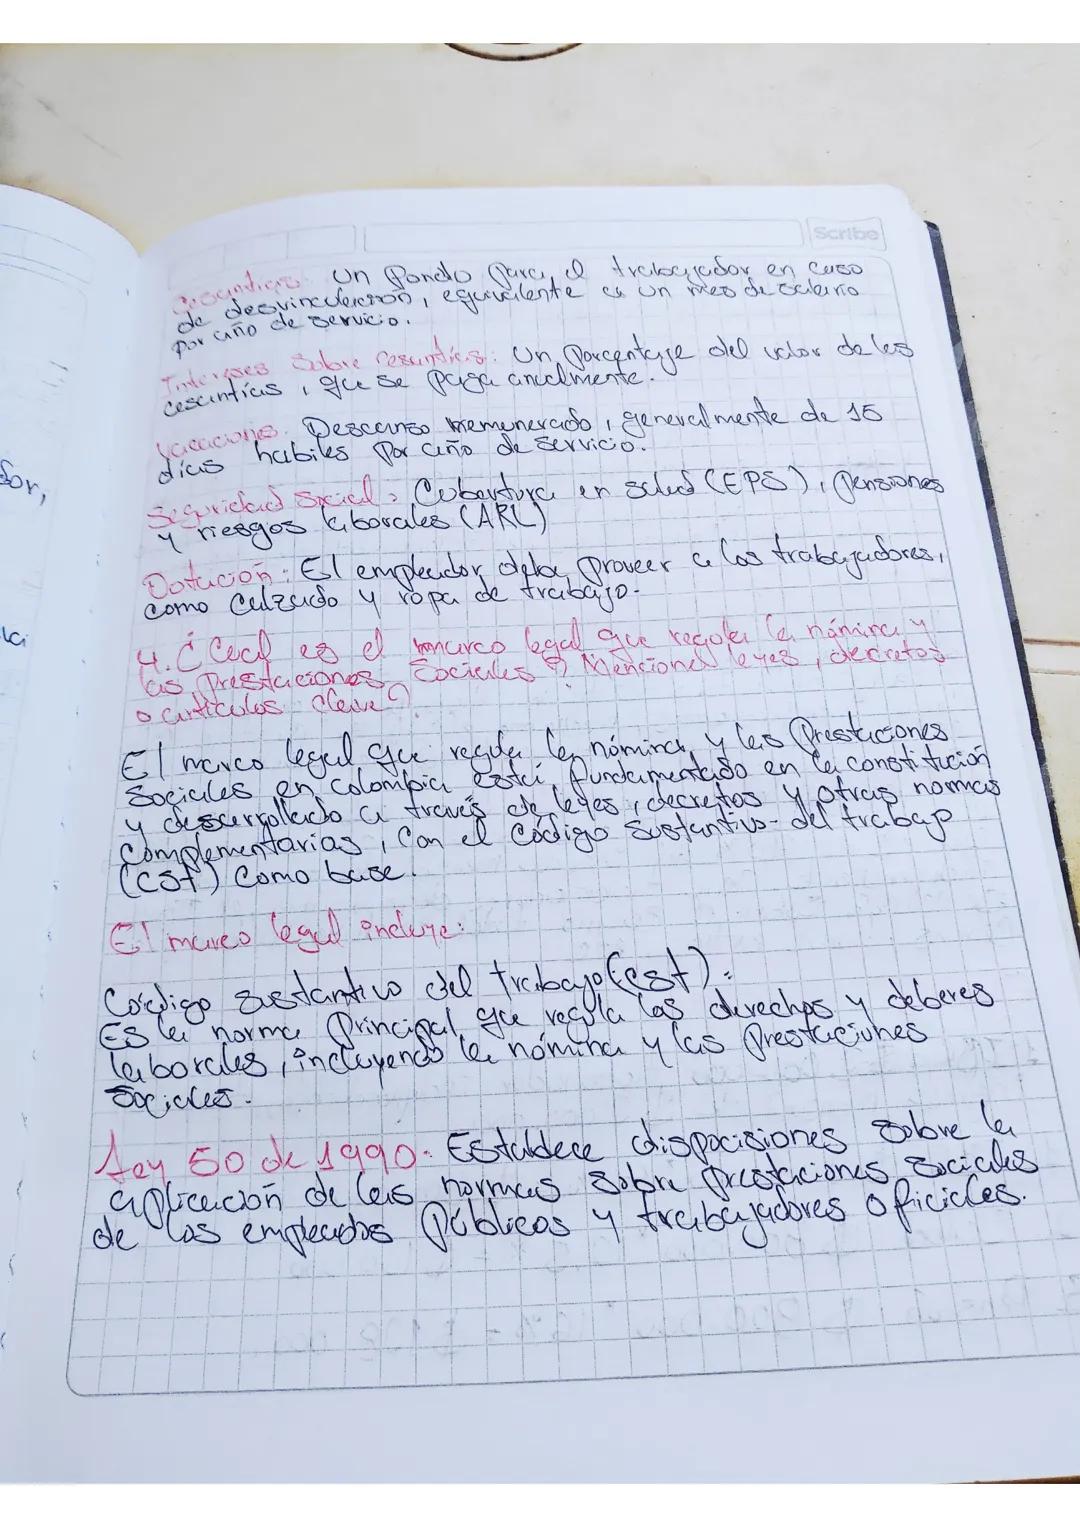 Scribe
Cesantias: Un Fondo Para el trabajador en caso
de desvinculación, equivalente a un mes de salario
por año de servicio.
Intereses Sobre cesantías: Un Porcentaje del valor de las
cesantías, que se paga anualmente.
Vacaciones. Descanso remenerado, generalmente de 15
días habiles Por año de servicio.
Seguridad Social: Cobertura en salud (EPS), Pensiones
y riesgos laborales (ARL)
Dotación: El empleador debe proveer a los trabajadores,
como Calzado y ropa de trabajo.
4. ¿Cual es el marco legal que regola la nómina y
las Prestaciones Sociales? Mencione leyes, decretos
o artículos clave?
El marco legal que regula la nómina y las Prestaciones
Sociales en Colombia está fundamentado en la constitución
y desarrollado a través de leyes, decretos y otras normas
complementarias, con el Código Sustantivo del trabajo
(CST) como base.
El marco legal incluye:
Código sustantivo del trabajo (cst):
Es la norma Principal que regula los derechos y deberes
laborales, incluyendo la nómina y las Prestaciones
Sociales.
Ley 50 de 1990. Establece disposiciones sobre la
aplicación de las normas sobre prestaciones sociales
de los empleados Públicos y trabajadores oficiales.
dor,
la